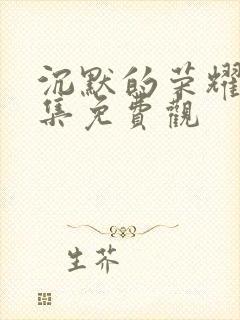 沉默的荣耀
集免費觀
生芥